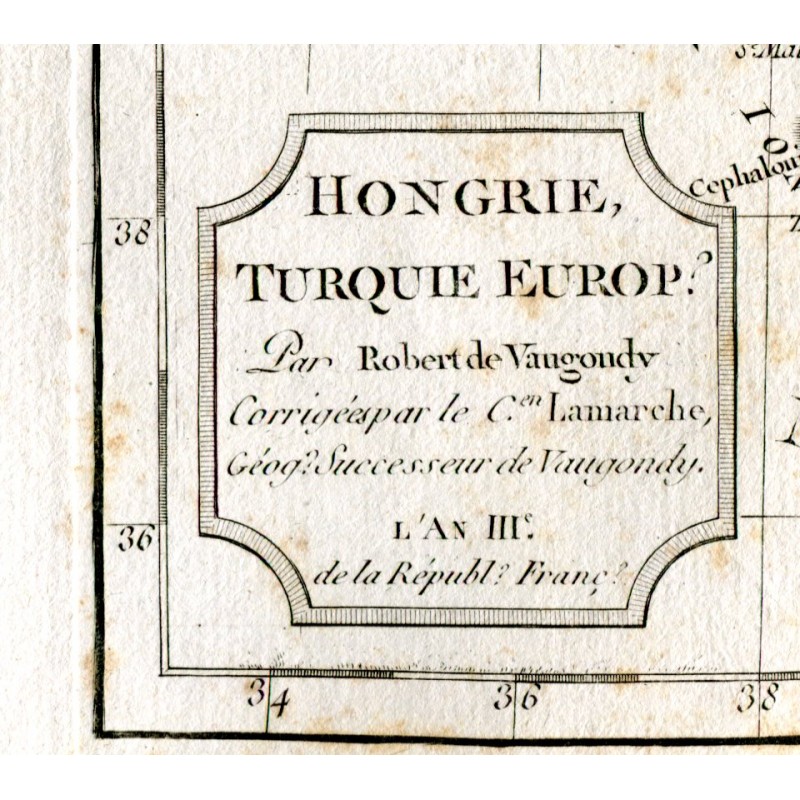 S.t Mar
ION
Cephaloni
Z
38
HONGRIE,
TURQUIE EUROP.e
Par Robert de Vaugondy
Corrigées par le C.en Lamarche,
Géog.e Successeur de Vaugondy.
L'AN III.e
de la Républ.e Franç.e
36
34 36 38